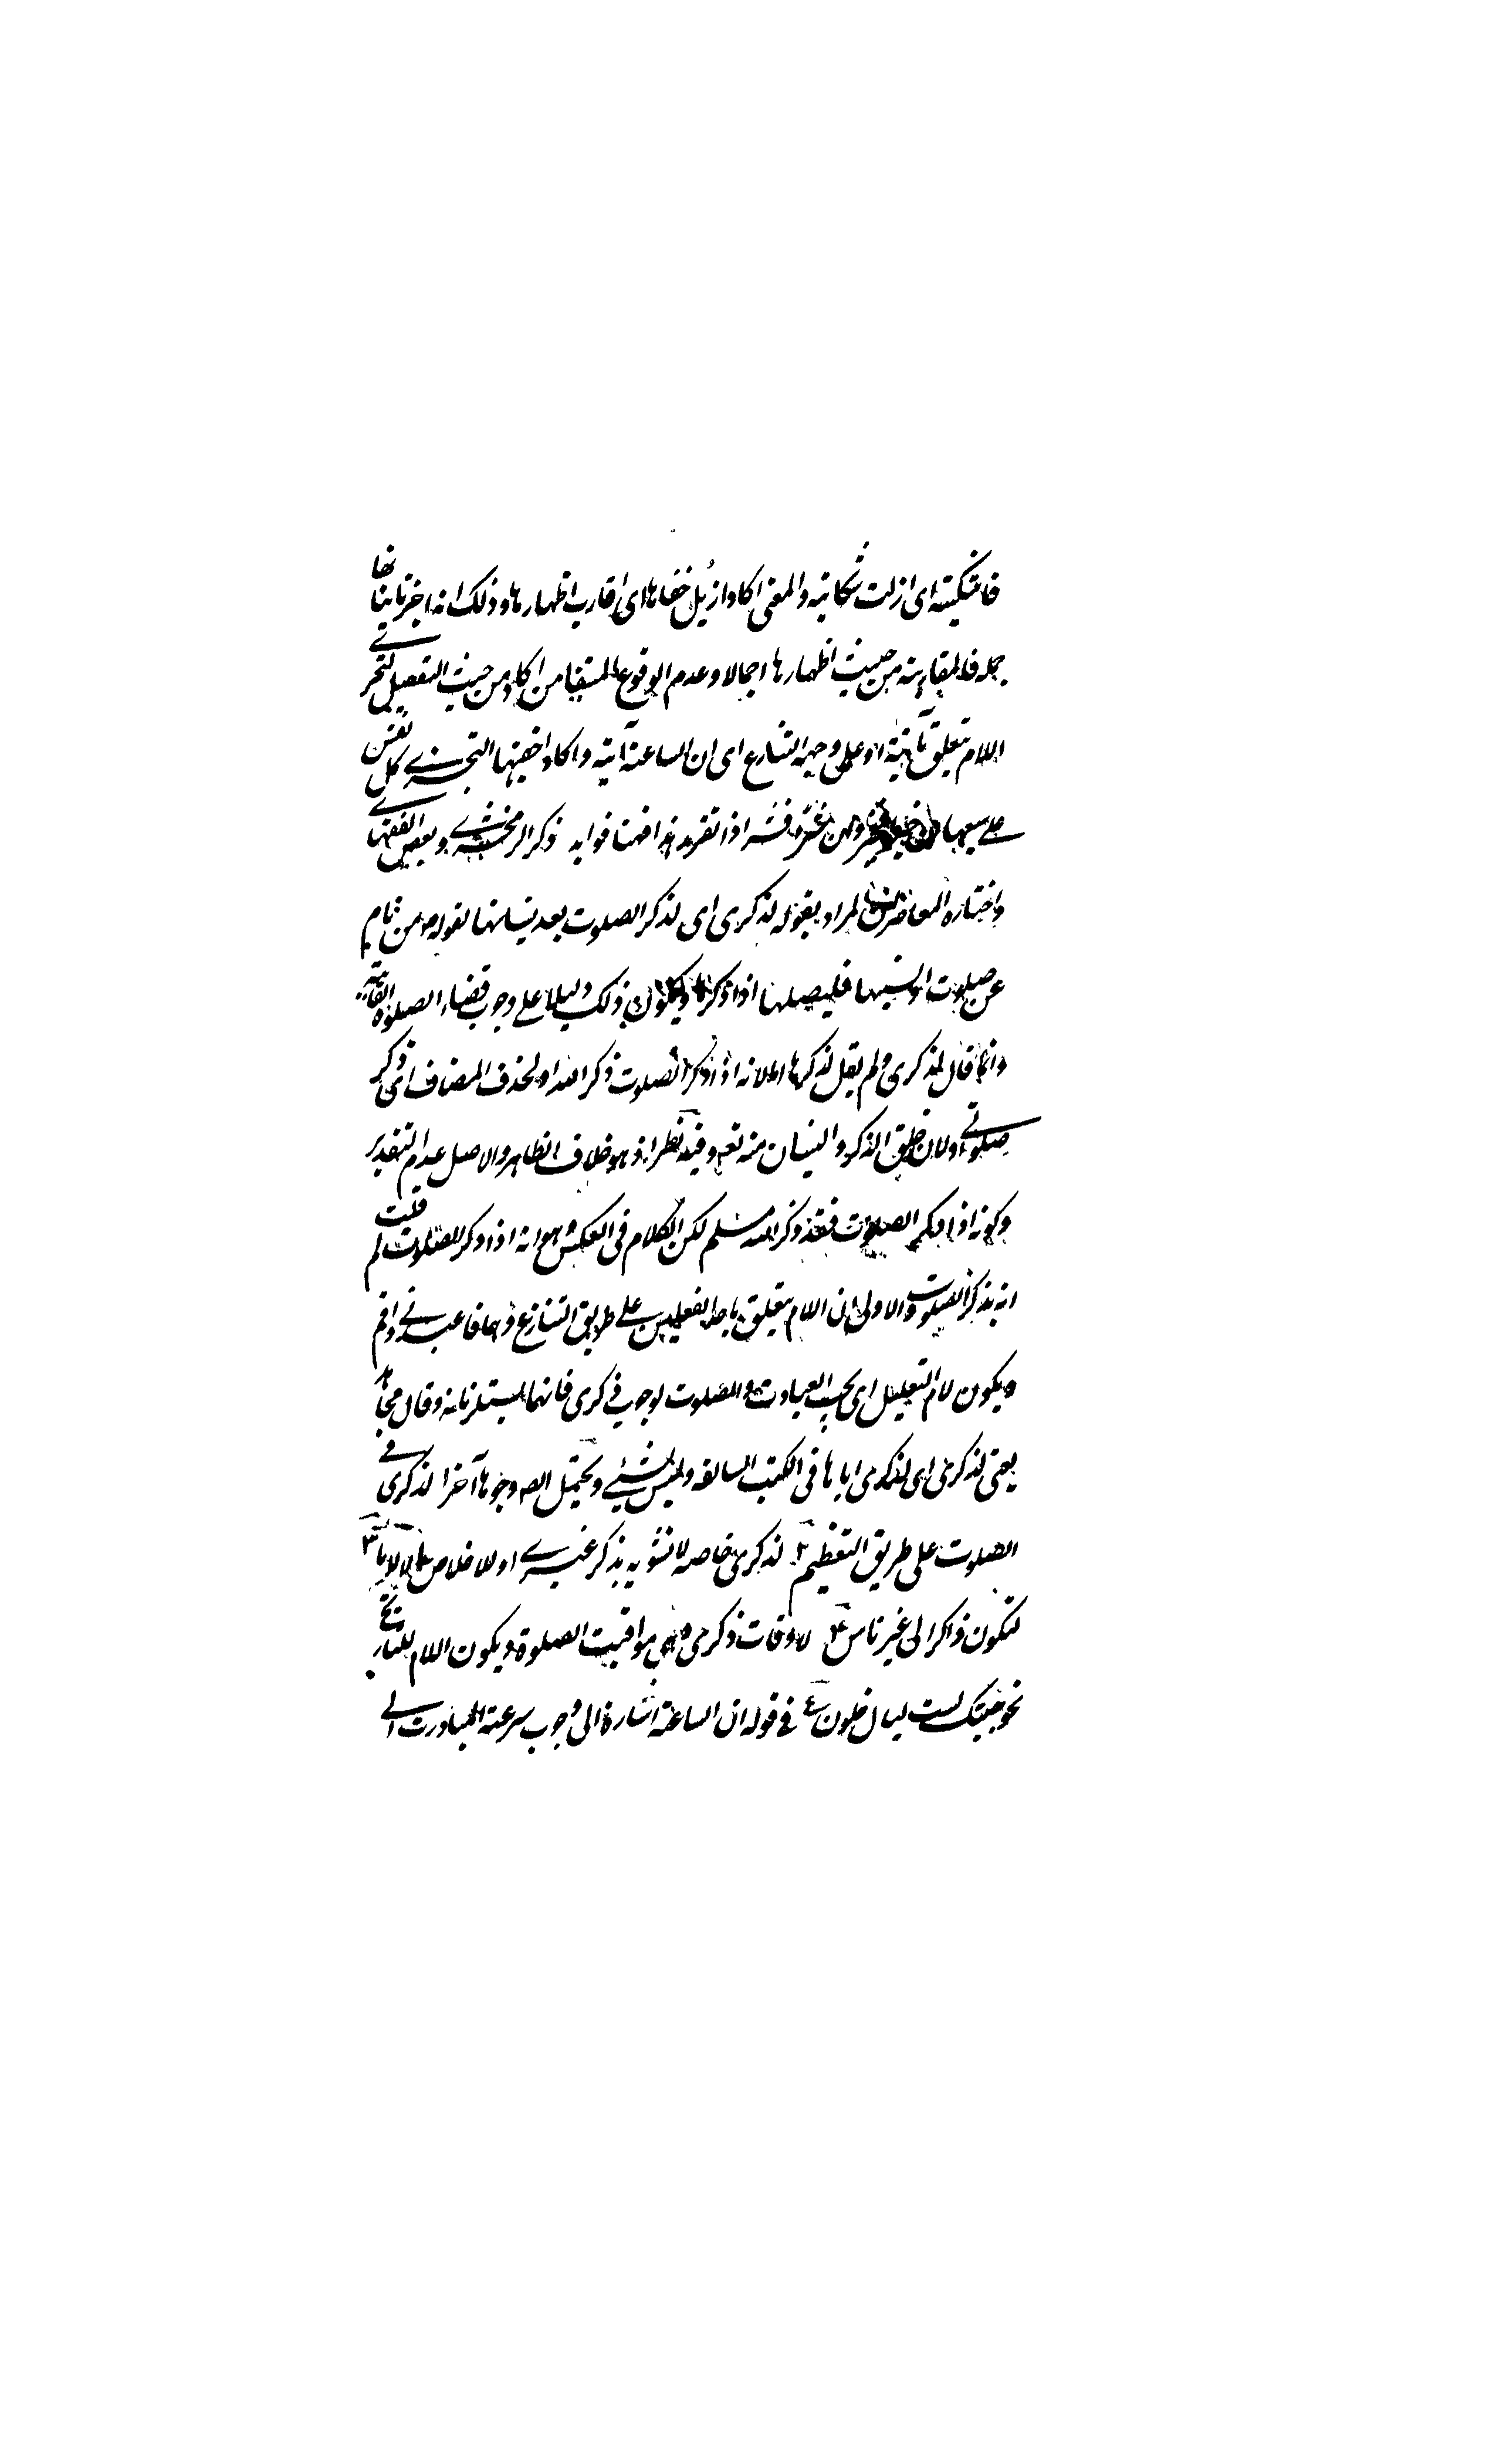 فاشكيته اى ازلت شكايته والمعنى اكاد ازيل خفاءها اى اقارب اظهارها وذلك انه اخبر باتيانها
جملة فالمقاربة من حيث اظهارها اجمالا وعدم الوقوع المستفاد من اكاد من حيث التفصيل لتجزى
اللام يتعلق بآتية او على وجه التنازع اى ان الساعة آتية واكاد اخفيها لتجزى كل نفس
على سعيها اذا تقرر هذا فهنا فوايد ذكر الزمخشرى وبعض الفقهاء
واختاره المعاصر ان المراد بقوله لذكرى اى لذكر الصلوت بعد نسيانها لقوله من نام
عن صلوت او نسيها فليصلها اذا ذكرها ويكون ذلك دليلا على وجوب قضاء الصلوة الفايتة
وانما قال لذكرى ولم يقل لذكرها اما لانه اذا ذكر الصلوت ذكر الله او لحذف المضاف اى ذكر
صلوتى او لان خلق الذكر والنسيان منه تعالى وفيه نظر اذ هو خلاف الظاهر والاصل عدم التقدير
وكونه اذا ذكر الصلوت فقد ذكر الله مسلم لكن الكلام فى العكس وهو انه اذا ذكر الصلوت لم قلت
انه يذكر الصلوت والاولى ان اللام يتعلق باحد الفعلين على طريق التنازع وهما فاعبدنى واقم
ويكون لام التعليل اى يجب العبادت والصلوت لوجوب ذكرى فانهما يستلزمانه وقال مجاهد
يعنى لذكرى اى لذكرى اياها فى الكتب السالفة وليس بشيئ ويحتمل ايض وجوها آخر ا لذكرى فى
الصلوت على طريق التعظيم ٢ لذكرى خاصه لا تشوبه بذكر غيرى او للاخلاص لا للرياء ٣
لتكون ذاكرا لى غير ناس ٤ لاوقات ذكرى وهى مواقيت الصلوة ويكون اللام للتاريخ
نحو جئتك لست ليال خلون فى قوله ان الساعة اشارة الى وجوب سرعة المبادرت الى